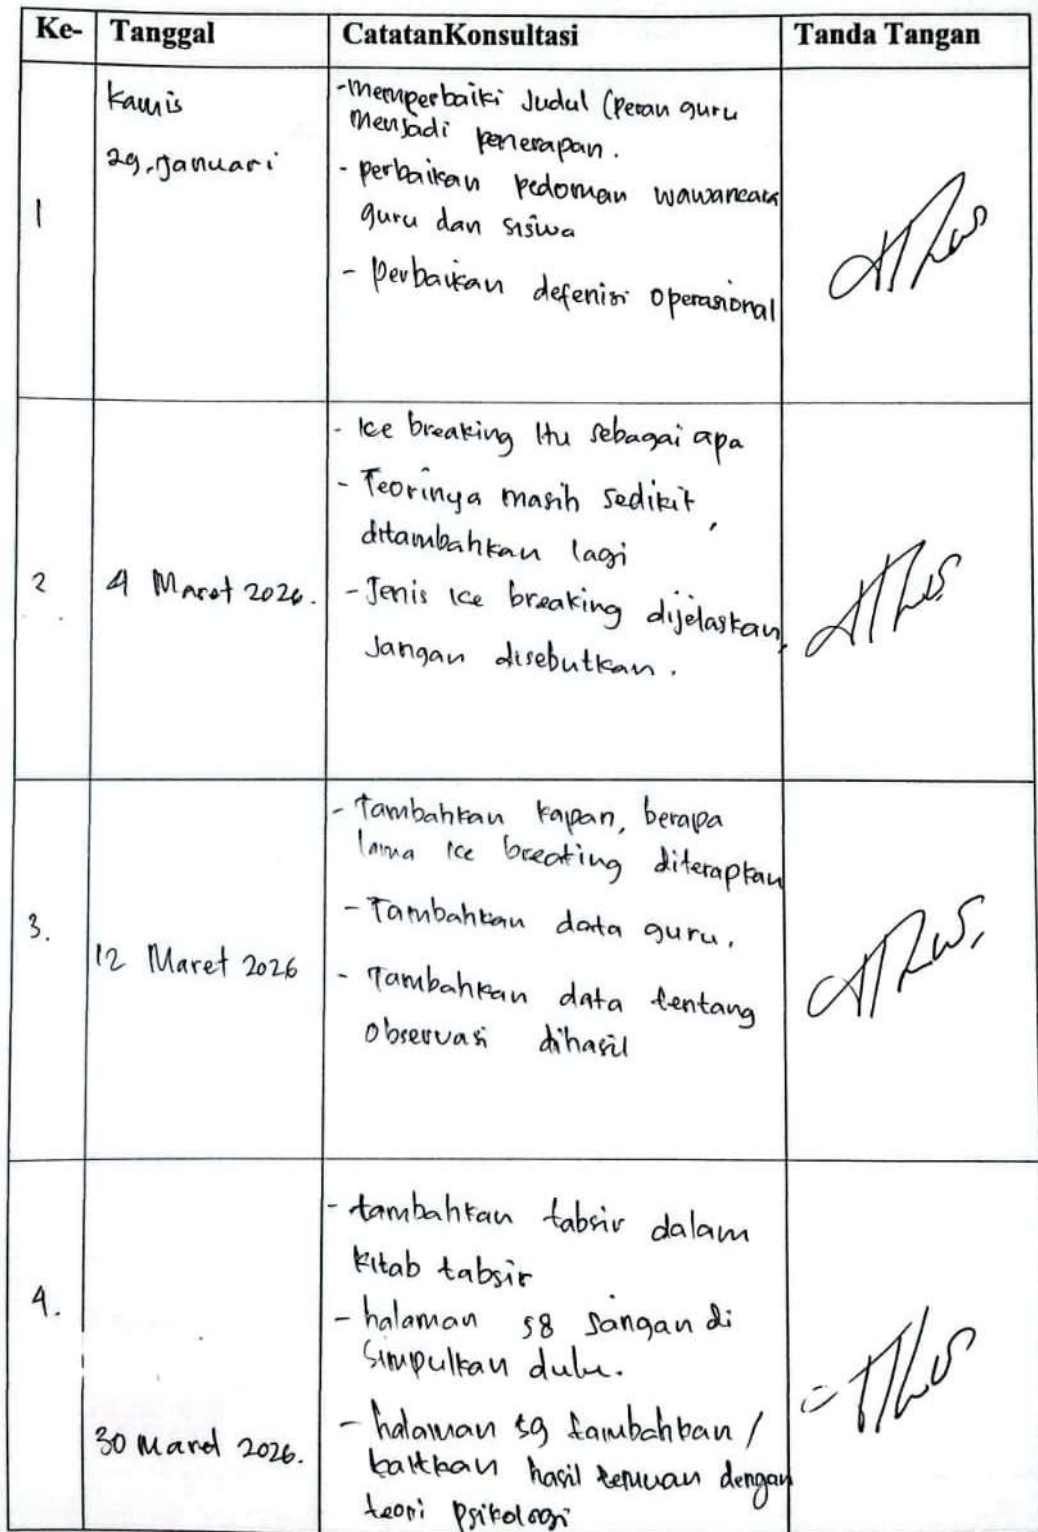 Ke- Tanggal CatatanKonsultasi Tanda Tangan
1
Kamis
29, Januari
- Memperbaiki Judul (Peran guru
menjadi penerapan.
- perbaikan pedoman wawancara
guru dan siswa
- Perbaikan defenisi operasional
2
4 Maret 2026.
- Ice breaking Itu sebagai apa
- Teorinya masih sedikit,
ditambahkan lagi
- Jenis Ice breaking dijelaskan,
Jangan disebutkan.
3.
12 Maret 2026
- Tambahkan kapan, berapa
lama Ice breaking diterapkan
- Tambahkan data guru.
- Tambahkan data tentang
Observasi dihasil
4.
30 Maret 2026.
- tambahkan tabsir dalam
kitab tabsir
- halaman 58 Jangan di
Simpulkan dulu.
- halaman 59 tambahkan /
kaitkan hasil temuan dengan
teori Psikologi